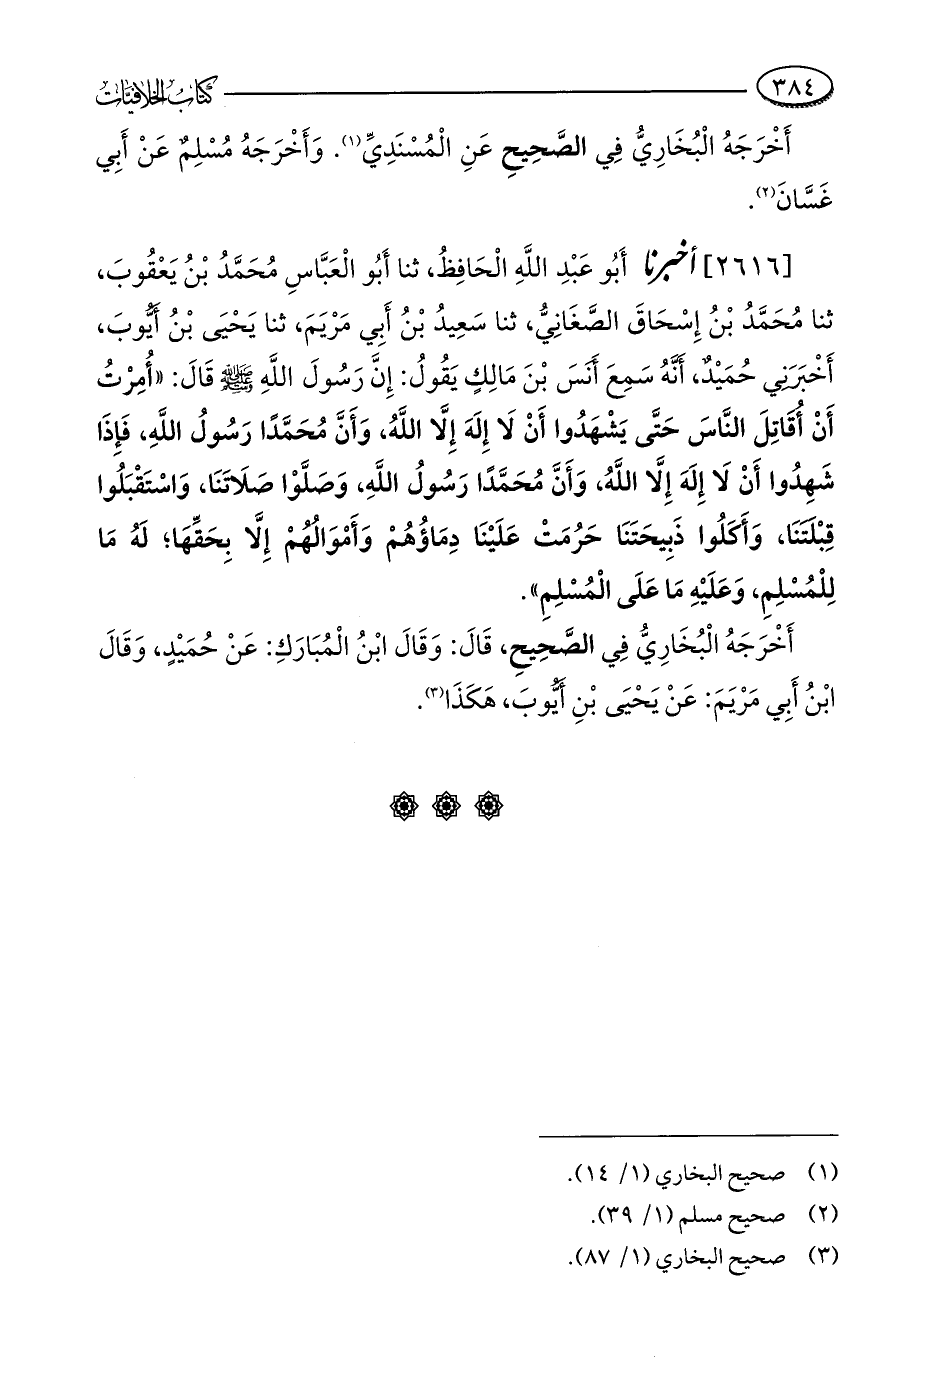 ٣٨٤ كتاب الخلافيات
أَخْرَجَهُ الْبُخَارِيُّ فِي الصَّحِيحِ عَنِ الْمُسْنَدِيِّ(١). وَأَخْرَجَهُ مُسْلِمٌ عَنْ أَبِي
غَسَّانَ(٢).
[٢٦١٦] أخبرنا أَبُو عَبْدِ اللَّهِ الْحَافِظُ، ثنا أَبُو الْعَبَّاسِ مُحَمَّدُ بْنُ يَعْقُوبَ،
ثنا مُحَمَّدُ بْنُ إِسْحَاقَ الصَّغَانِيُّ، ثنا سَعِيدُ بْنُ أَبِي مَرْيَمَ، ثنا يَحْيَى بْنُ أَيُّوبَ،
أَخْبَرَنِي حُمَيْدٌ، أَنَّهُ سَمِعَ أَنَسَ بْنَ مَالِكٍ يَقُولُ: إِنَّ رَسُولَ اللَّهِ ﷺ قَالَ: «أُمِرْتُ
أَنْ أُقَاتِلَ النَّاسَ حَتَّى يَشْهَدُوا أَنْ لَا إِلَهَ إِلَّا اللَّهُ، وَأَنَّ مُحَمَّدًا رَسُولُ اللَّهِ، فَإِذَا
شَهِدُوا أَنْ لَا إِلَهَ إِلَّا اللَّهُ، وَأَنَّ مُحَمَّدًا رَسُولُ اللَّهِ، وَصَلَّوْا صَلَاتَنَا، وَاسْتَقْبَلُوا
قِبْلَتَنَا، وَأَكَلُوا ذَبِيحَتَنَا حَرُمَتْ عَلَيْنَا دِمَاؤُهُمْ وَأَمْوَالُهُمْ إِلَّا بِحَقِّهَا؛ لَهُ مَا
لِلْمُسْلِمِ، وَعَلَيْهِ مَا عَلَى الْمُسْلِمِ».
أَخْرَجَهُ الْبُخَارِيُّ فِي الصَّحِيحِ، قَالَ: وَقَالَ ابْنُ الْمُبَارَكِ: عَنْ حُمَيْدٍ، وَقَالَ
ابْنُ أَبِي مَرْيَمَ: عَنْ يَحْيَى بْنِ أَيُّوبَ، هَكَذَا(٣).
(١) صحيح البخاري (١/ ١٤).
(٢) صحيح مسلم (١/ ٣٩).
(٣) صحيح البخاري (١/ ٨٧).